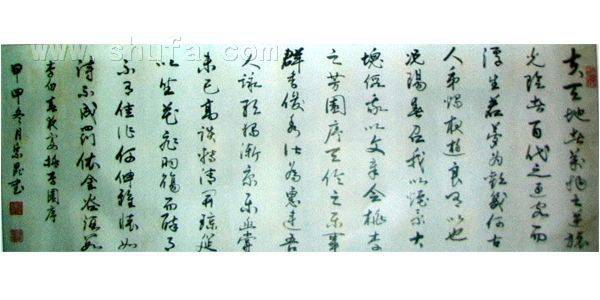 www.shufa.com
夫天地者萬物之逆旅
光陰者百代之過客而
浮生若夢為歡幾何古
人秉燭夜遊良有以也
況陽春召我以煙景大
塊假我以文章會桃李
之芳園序天倫之樂事
群季俊秀皆為惠連吾
人詠歌獨慚康樂幽賞
未已高談轉清開瓊筵
以坐花飛羽觴而醉月
不有佳作何伸雅懷如
詩不成罰依金谷酒數
李白春夜宴桃李園序
甲申冬月